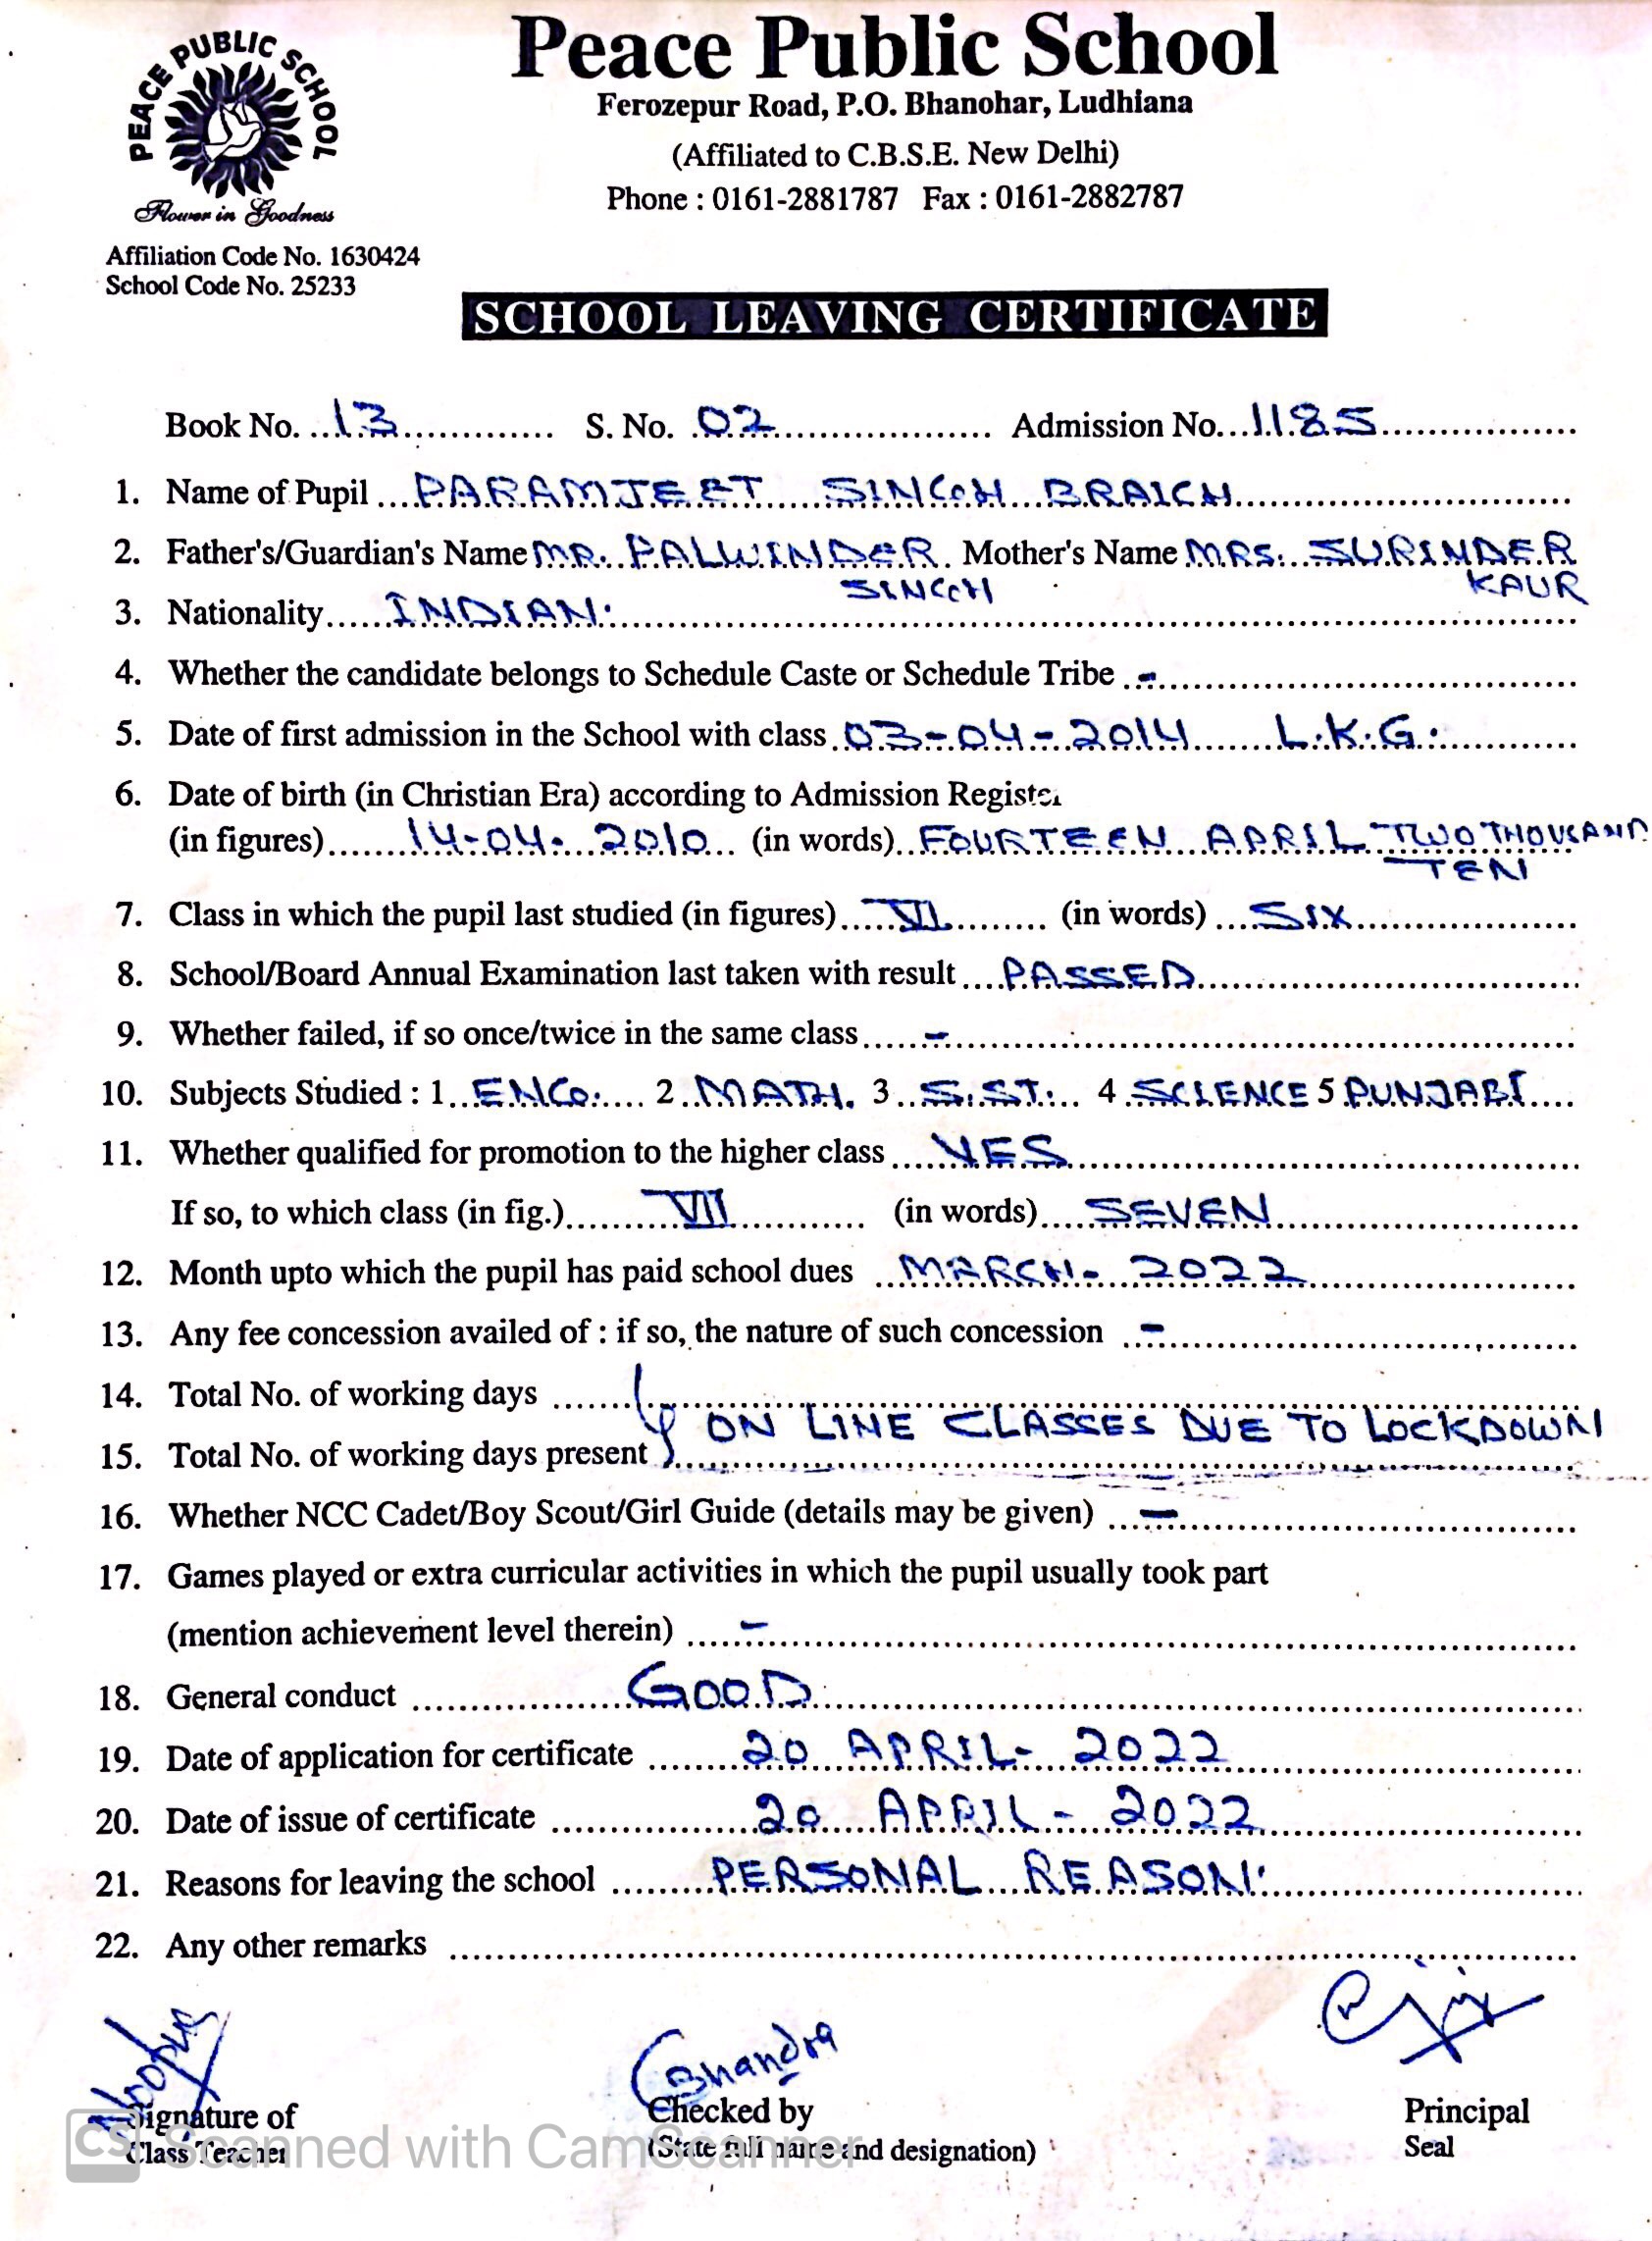 PEACE PUBLIC SCHOOL
Flower in Goodness
Affiliation Code No. 1630424
School Code No. 25233
Peace Public School
Ferozepur Road, P.O. Bhanohar, Ludhiana
(Affiliated to C.B.S.E. New Delhi)
Phone : 0161-2881787 Fax : 0161-2882787
SCHOOL LEAVING CERTIFICATE
Book No. 13 S. No. 02 Admission No. 1185
1. Name of Pupil PARAMJEET SINGH BRAICH
2. Father's/Guardian's Name MR. PALWINDER SINGH Mother's Name MRS. SURINDER KAUR
3. Nationality INDIAN.
4. Whether the candidate belongs to Schedule Caste or Schedule Tribe -
5. Date of first admission in the School with class 03-04-2014 L.K.G.
6. Date of birth (in Christian Era) according to Admission Register
(in figures) 14-04-2010 (in words) FOURTEEN APRIL TWO THOUSAND TEN
7. Class in which the pupil last studied (in figures) VI (in words) SIX
8. School/Board Annual Examination last taken with result PASSED
9. Whether failed, if so once/twice in the same class -
10. Subjects Studied : 1 ENG. 2 MATH. 3 S.ST. 4 SCIENCE 5 PUNJABI
11. Whether qualified for promotion to the higher class YES
If so, to which class (in fig.) VII (in words) SEVEN
12. Month upto which the pupil has paid school dues MARCH - 2022
13. Any fee concession availed of : if so, the nature of such concession -
14. Total No. of working days
ON LINE CLASSES DUE TO LOCKDOWN
15. Total No. of working days present
16. Whether NCC Cadet/Boy Scout/Girl Guide (details may be given) -
17. Games played or extra curricular activities in which the pupil usually took part
(mention achievement level therein) -
18. General conduct GOOD
19. Date of application for certificate 20 APRIL - 2022
20. Date of issue of certificate 20 APRIL - 2022
21. Reasons for leaving the school PERSONAL REASON.
22. Any other remarks
Chandra
Signature of Checked by Principal
Class Teacher (State full name and designation) Seal
CS Scanned with CamScanner